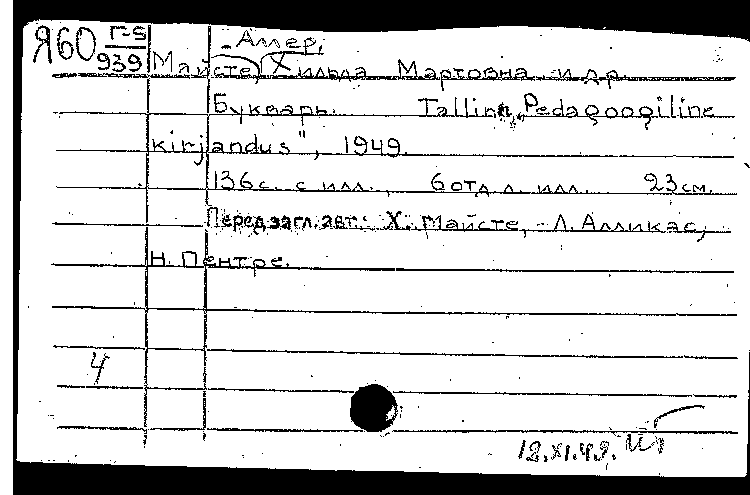 Я60 Г-5
939
-Аллер,
Майсте, Хильда Мартовна и др.
Букварь. Tallinn, „Pedagoogiline
kirjandus", 1949.
136с. с илл., 6 отд. л. илл. 23 см.
Перед загл. авт.: Х. Майсте, Л. Алликас,
Н. Пентре.
4
12.XI.49.